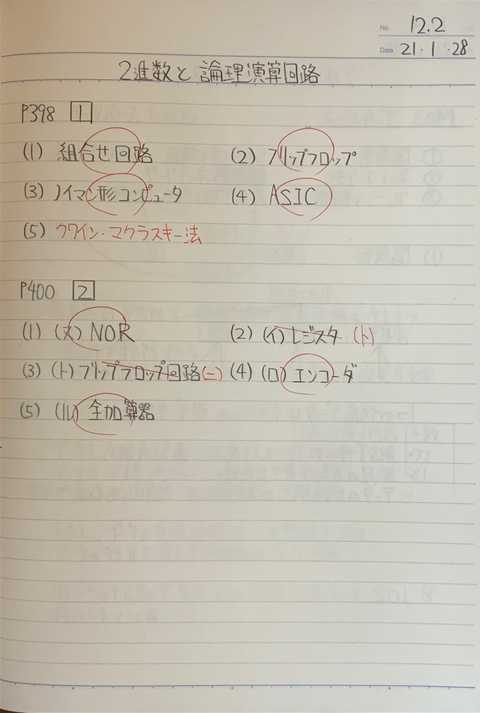 No. 12.2
Date 21・1・28
2進数と論理演算回路
P398 1
(1) 組合せ回路 (2) フリップフロップ
(3) ノイマン形コンピュータ (4) ASIC
(5) クワイン・マクラスキー法
P400 2
(1) (ヌ) NOR (2) (イ) レジスタ (ト)
(3) (ト) フリップフロップ回路 (ニ) (4) (ロ) エンコーダ
(5) (ル) 全加算器